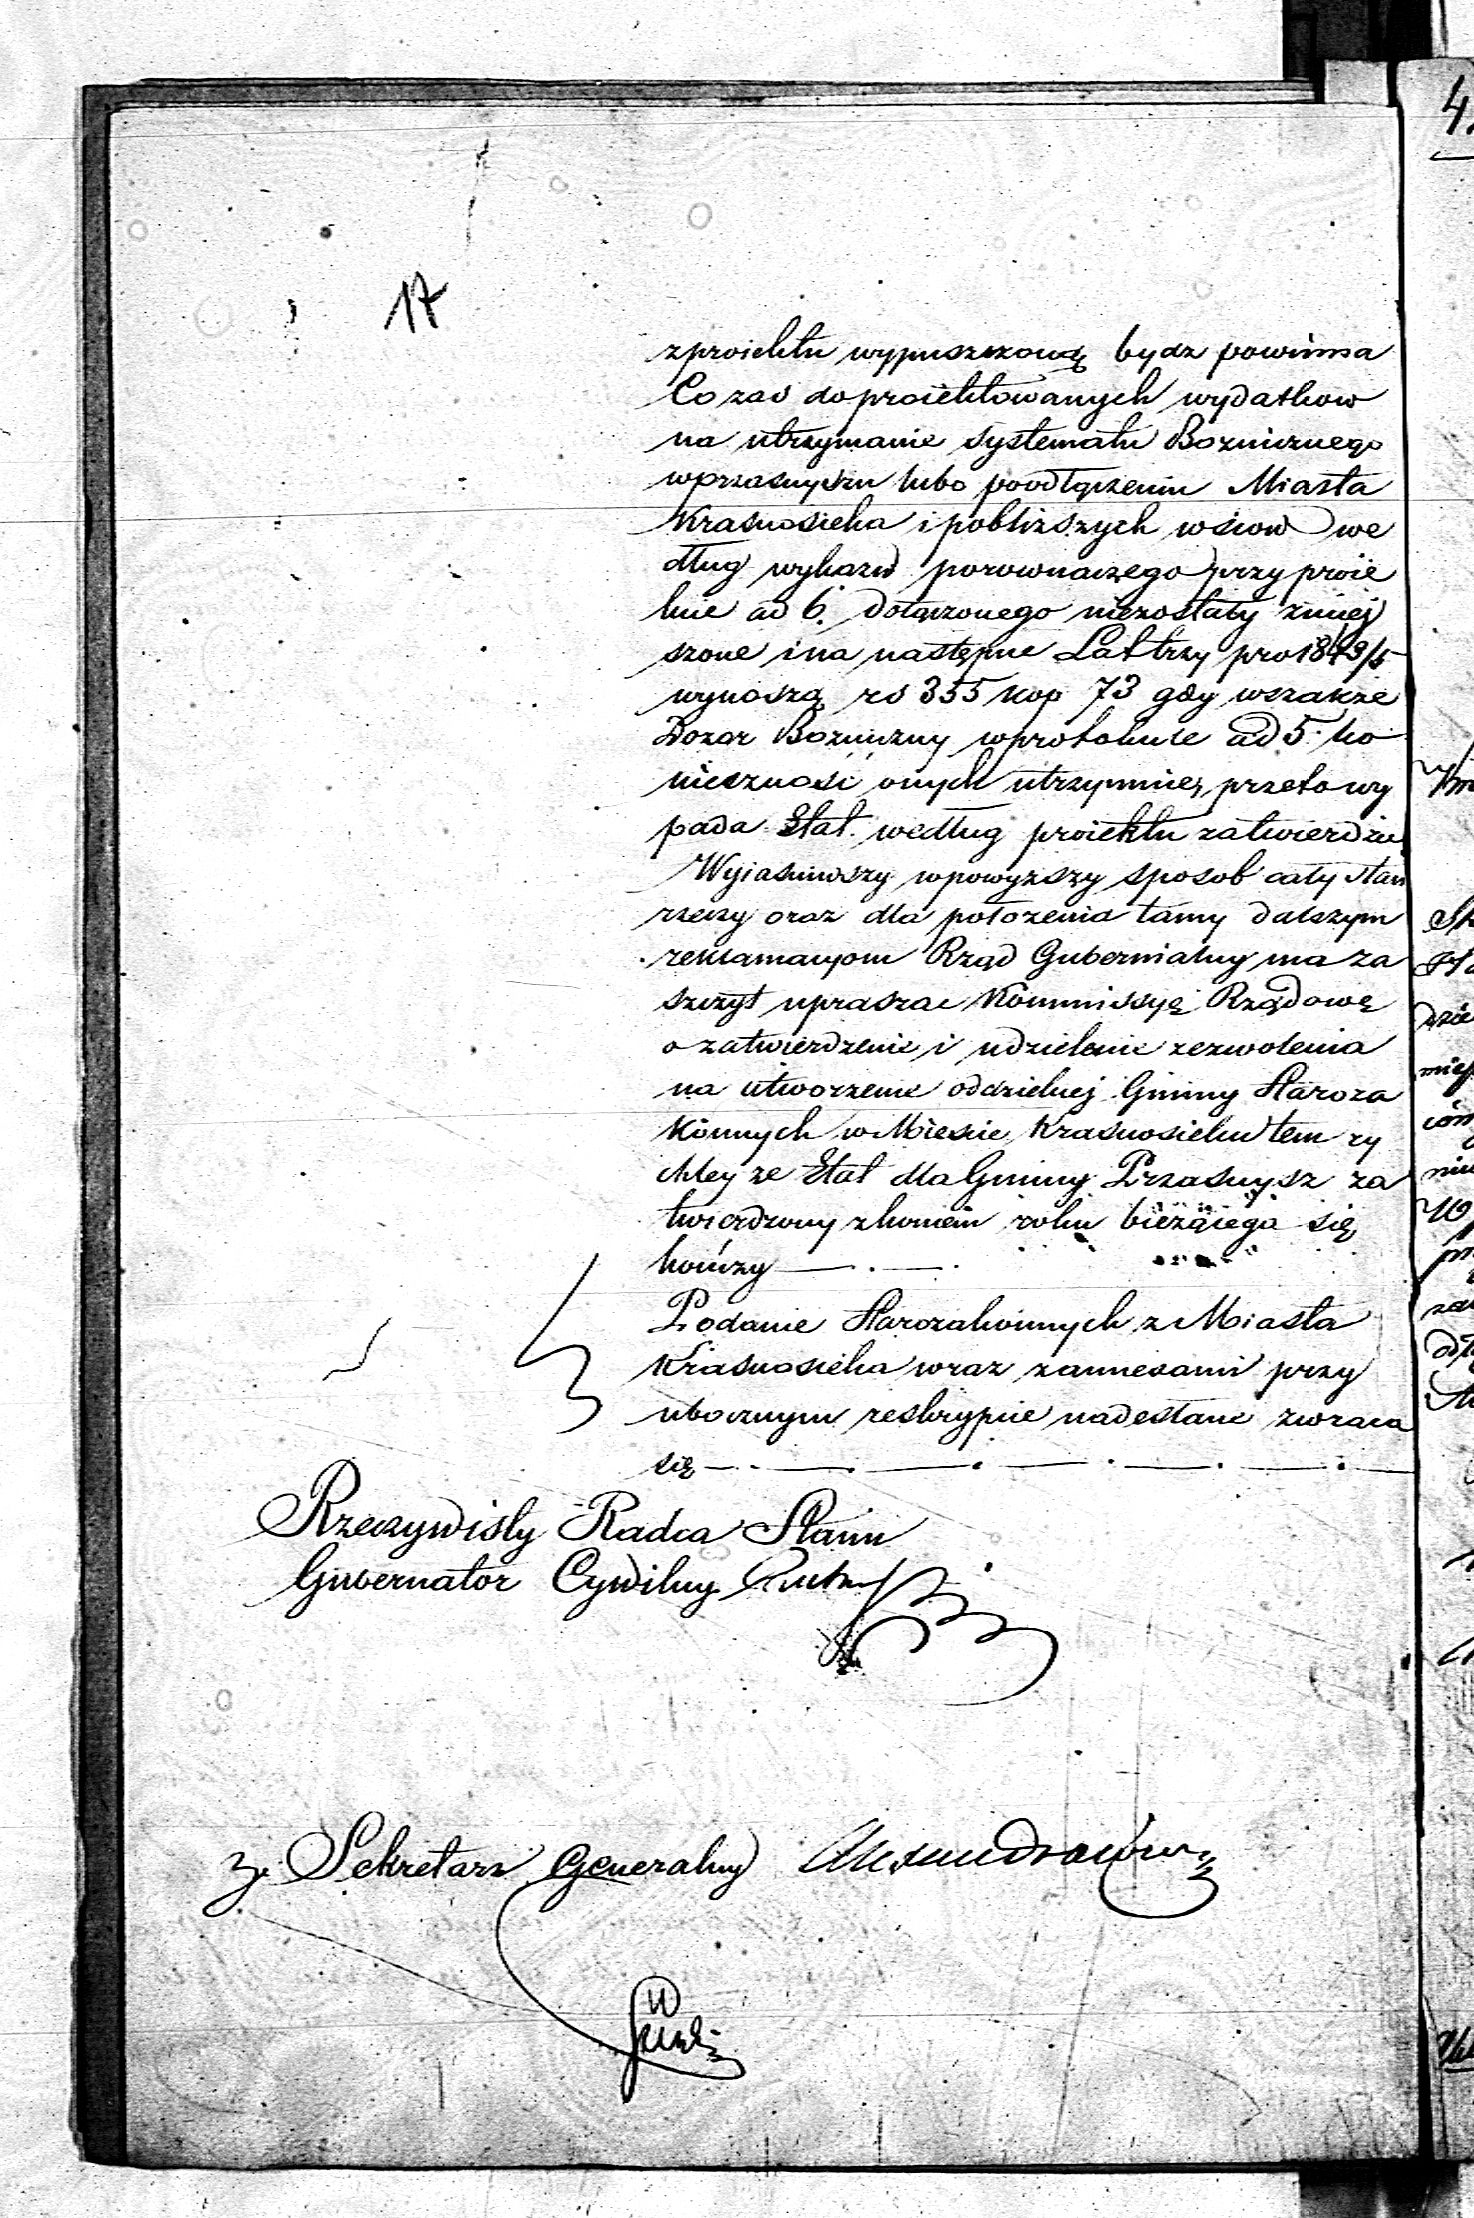 17
z proiektu wypuszczoną bydz powinna
Co zaś do proiektowanych wydatkow
na utrzymanie systematu Boznicznego
w przasnyszu lubo po odłączeniu Miasta
Krasnosielca i pobliższych wsiow we
dług wykazu porownaczego przy proie
kcie ad 6. dołączonego niezostały zmniej
szone i na następne Lat trzy pro 1843/5
wynoszą rs 355 kop 73 gdy wszakże
Dozor Bozniczny w protokule ad 5. ko
nieczność onych utrzymuie, przeto wy
pada Etat według proiektu zatwierdzić
Wyiasniwszy w powyzszy sposob cały stan
rzeczy oraz dla położenia tamy dalszym
reklamacyom Rząd Gubernialny ma za
szczyt upraszac Kommissyę Rządowę
o zatwierdzenie i udzielenie zezwolenia
na utworzenie oddzielnej Gminy Staroza
konnych w Miescie Krasnosielcu tem ry
chley ze Etat dla Gminy Przasnysz za
twierdzony z koncem roku bieżącego się
kończy
Podanie Starozakonnych z Miasta
Krasnosielca wraz z annexami przy
ubocznym reskrypcie nadesłane zwraca
się
Rzeczywisty Radca Stanu
Gubernator Cywilny
z. Sekretarz Generalny